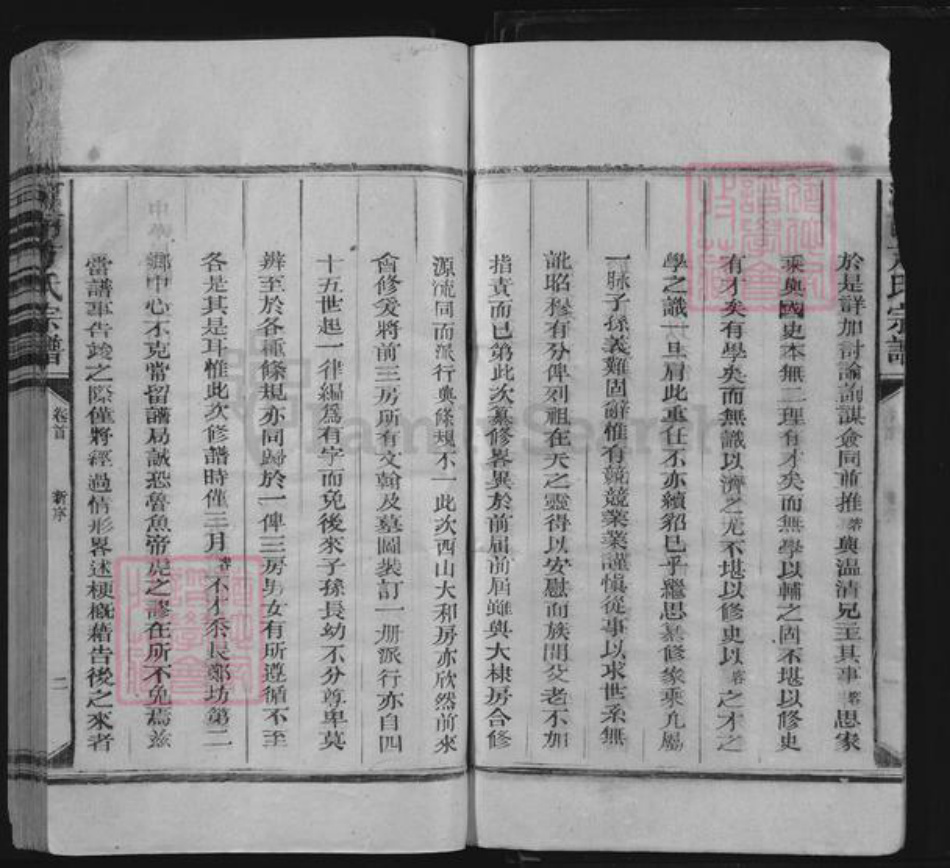 於是詳加討論詢謀僉同前推㟧與温清兄主其事㟧思家
乘與國史本無二理有才矣而無學以輔之固不堪以修史
有才矣有學矣而無識以濟之尤不堪以修史以 之才之
學之識一旦肩此重任不亦續貂已乎繼思纂修家乘凡屬
一脉子孫義難固辭惟有兢兢業業謹慎從事以求世系無
訛昭穆有分俾列祖在天之靈得以安慰而族間父老不加
指責而已第此次纂修畧異於前届前屆雖與大棣房合修
源流同而派行與條規不一此次西山大和房亦欣然前來
會修爰將前三房所有文翰及墓圖裝訂一册派行亦自四
十五世起一律編爲有字而免後來子孫長幼不分尊卑莫
辨至於各種條規亦同歸於一俾三房男女有所遵循不至
各是其是耳惟此次修譜時僅三月 不才忝長鄭坊第二
中學
鄉中心不克常留譜局誠恐魯魚帝虎之謬在所不免焉兹
當譜事告竣之際僅將經過情形畧述梗概藉告後之來者
氏宗譜
卷首
新序
二
氏宗譜
FamilySearch